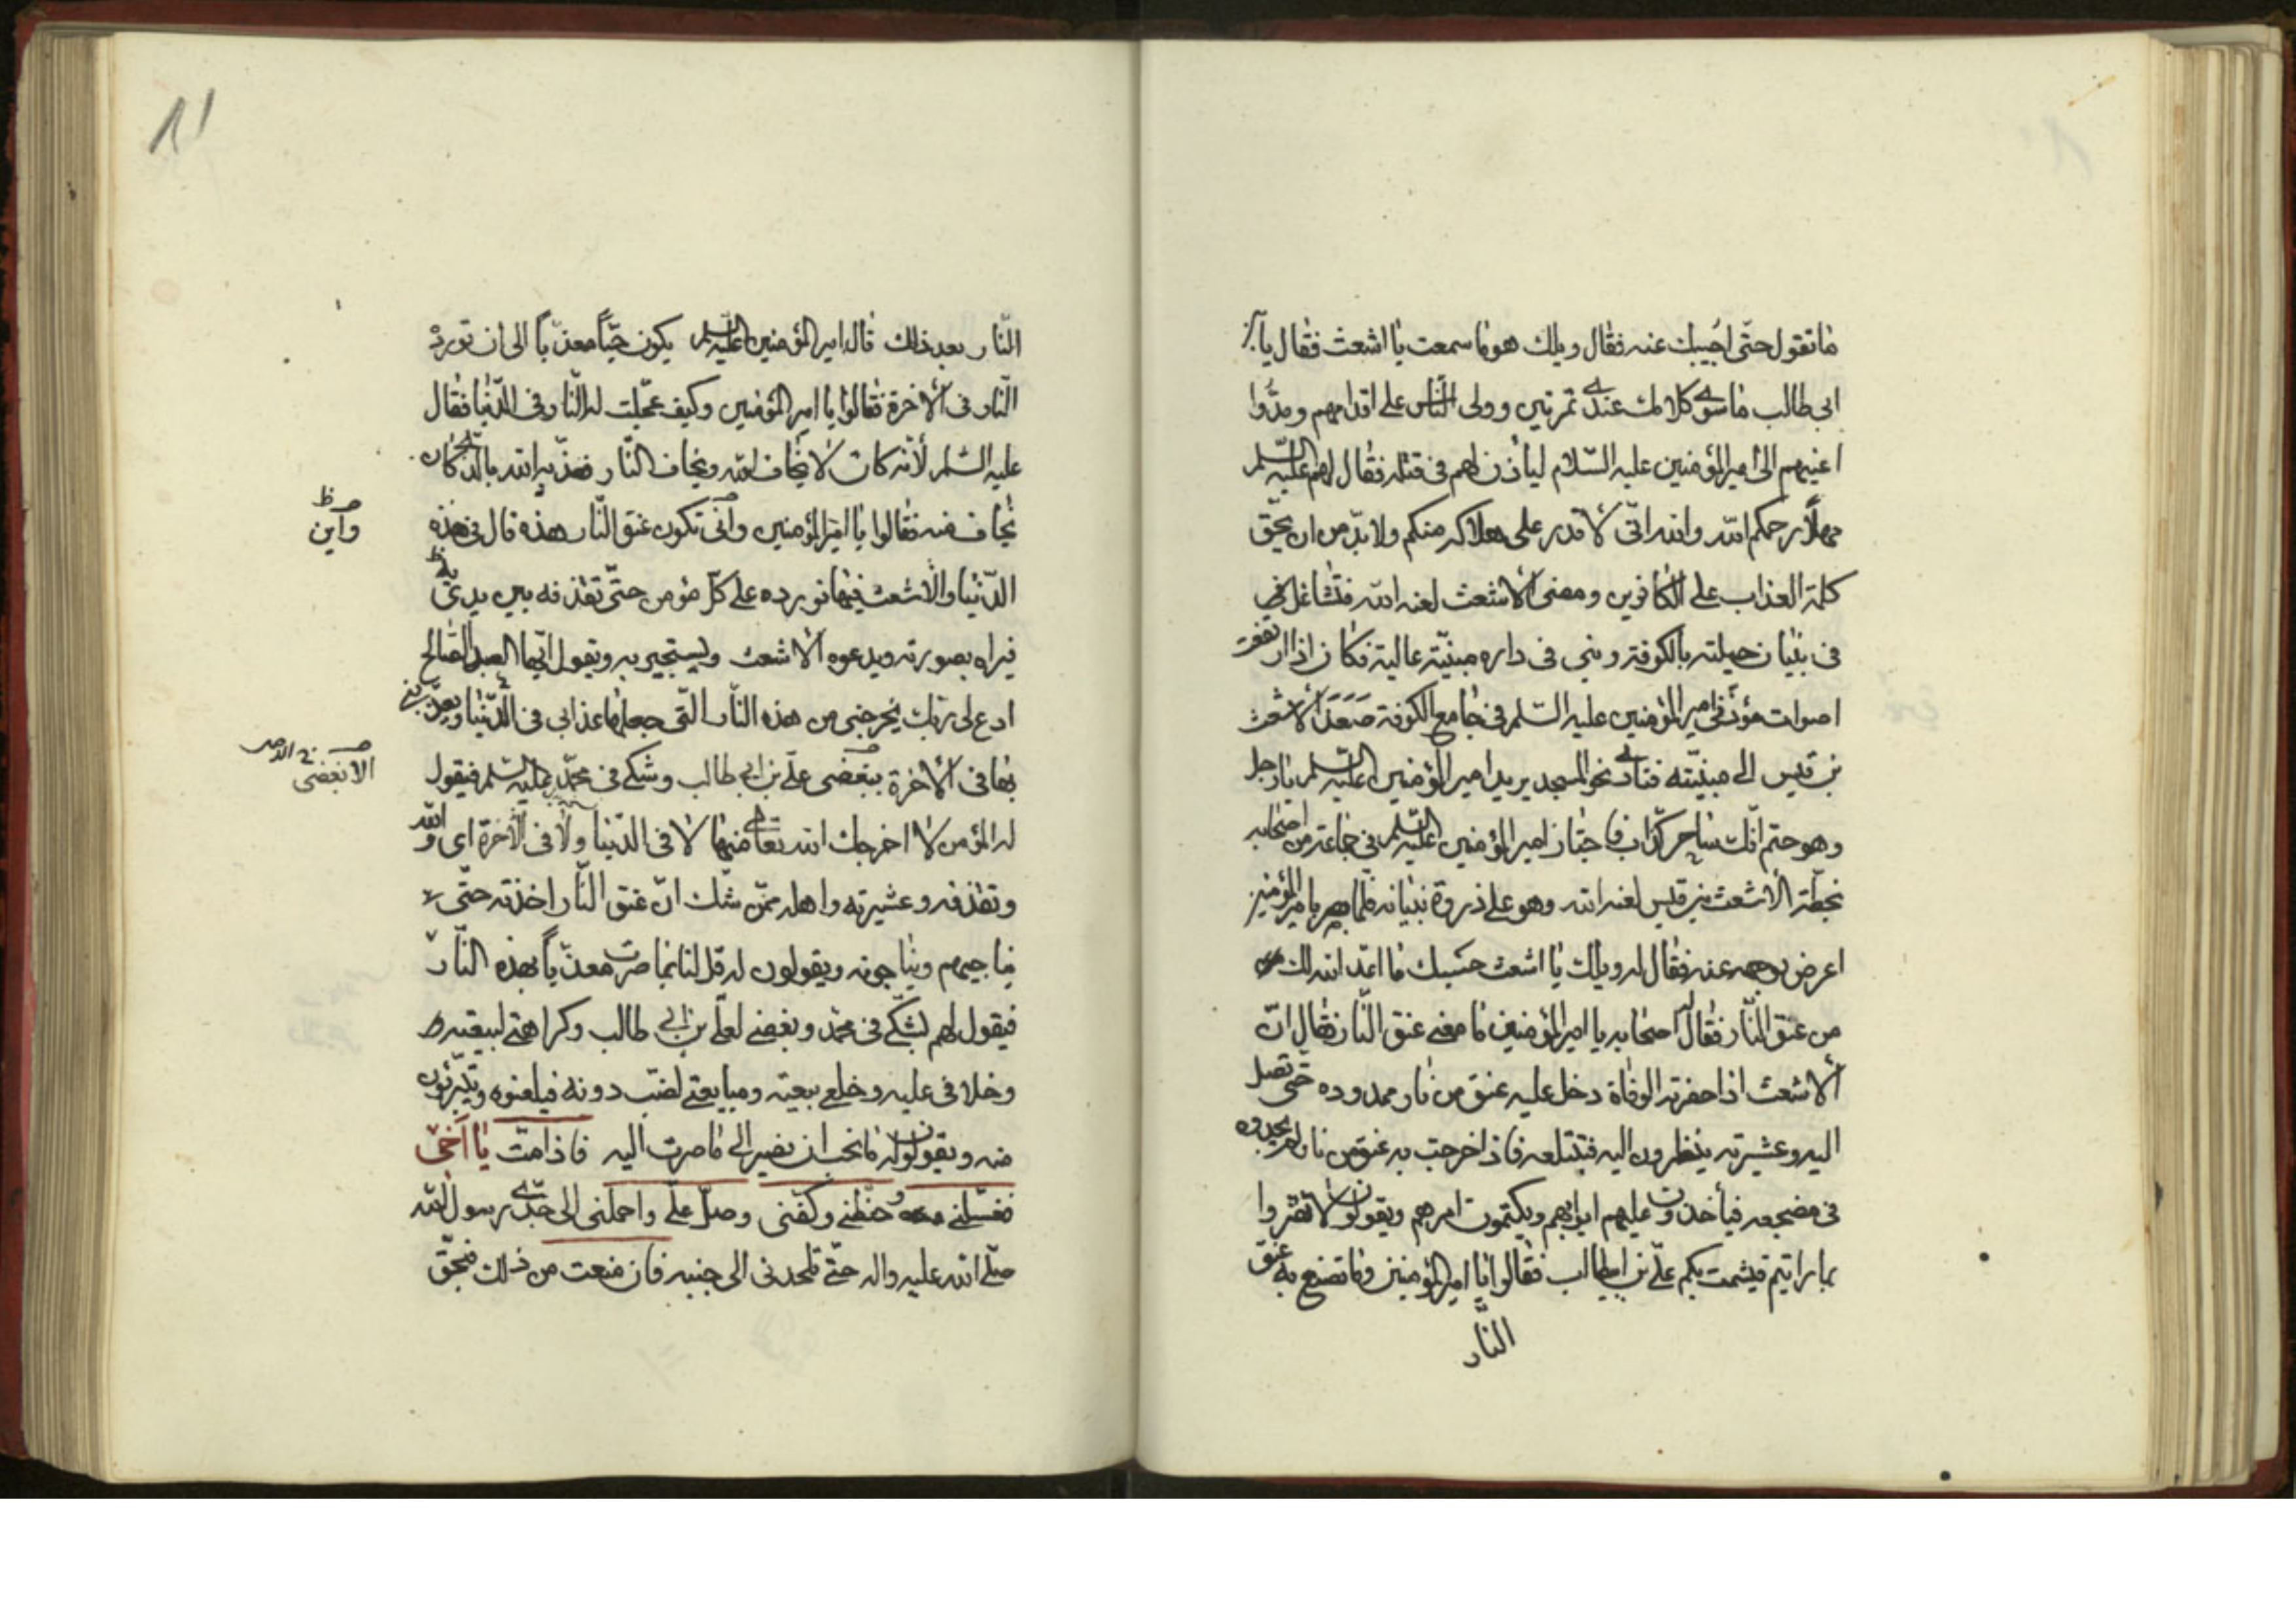 ما تقول حتّى اجيبك عنه فقال ويلك هو ما سمعت يا اشعث فقال يا بن
ابى طالب ما سوى كلامك عندى تمرتين وولى الناس على اقدامهم ومدّوا
اعنيهم الى امير المؤمنين عليه السّلام ليأذن لهم فى قتله فقال لهم عليه السّلم
مهلاً رحمكم الله والله انّى لاقدر على هلاكه منكم ولا بدّ من ان تحقّ
كلمة العذاب على الكافرين ومضى الاشعث لعنه الله فتشاغل فى
فى بنيان حيلته بالكوفة وبنى فى داره مبنيّة عالية فكان اذا ارتفعت
اصوات مؤذّنى امير المؤمنين عليه السّلم فى جامع الكوفة صَعَدَ الاشعث
بن قيس الى مبنيّته فنادى نحو المسجد يريد امير المؤمنين عليه السّلم يا رجل
وهو حتم انّك ساحر كذّاب فاجتاز امير المؤمنين عليه السّلم فى جماعة من اصحابه
بخطّة الاشعث بن قيس لعنه الله وهو على ذروة بنيانه فلمّا بصر بامير المؤمنين
اعرض بوجهه عنه فقال له ويلك يا اشعث حسبك ما اعدّ الله لك
من عنق النّار فقال له اصحابه يا امير المؤمنين ما معنى عنق النّار فقال انّ
الاشعث اذا حضرته الوفاة دخل عليه عنق من نار ممدودة حتّى تصل
اليه وعشيرته ينظرون اليه فتبتلعه فاذا خرجت به عنق من نار لم يجدوه
فى مضجعه فيأخذون عليهم ابوابهم ويكتمون امرهم ويقولون لا تقرّوا
بما رايتم فيشمت بكم علىّ بن ابيطالب فقالوا يا امير المؤمنين وما تصنع به عنق
النّار
١٨
النّار بعد ذلك قال امير المؤمنين عليه السّلم يكون حيّاً معذّباً الى ان تورده
النّار فى الاخرة فقالوا يا امير المؤمنين وكيف عجّلت له النّار فى الدّنيا فقال
عليه السّلم لأنّه كان لا يخاف الله ويخاف النّار فعذّبه الله بالّذى كان
يخاف منه فقالوا يا امير المؤمنين وانّى تكون عنق النّار هذه قال فى هذه
واين
الدّنيا والاشعث فيها تورده على كلّ مؤمن حتّى تقذفه بين يديه
فيراه بصورته ويدعوه الاشعث ويستجير به ويقول ايّها العبد الصّالح
ادع لى ربّك يخرجنى من هذه النّار الّتى جعلها عذابى فى الدّنيا ويعذّبنى
بها فى الاخرة ببغضى علىّ بن ابى طالب وشكى فى محمّد عليه السّلم فيقول
الابغضى
له المؤمن لا اخرجك الله تعالى منها لا فى الدّنيا ولا فى الآخرة اى والله
وتقذفه وعشيرته واهله ممّن شكّ انّ عنق النّار اخذته حتّى
يناجيهم ويناجونه ويقولون له قل لنا بما صرت معذّباً بهذه النّار
فيقول لهم بشكّى فى محمّد وبغضى لعلىّ بن ابى طالب وكراهتى لبيعته
وخلافى عليه وخلع بيعته ومبايعتى لضبّ دونه فيلعنوه ويتبرّئون
منه ويقولون له ما نحبّ ان نصير الى ما صرت اليه فاذا متّ يا اخى
فغسّلنى وحنّطنى وكفّنى وصلّ علىّ واحملنى الى جدّى رسول الله
صلّى الله عليه واله حتّى تلحدنى الى جنبه فان منعت من ذلك فبحقّ